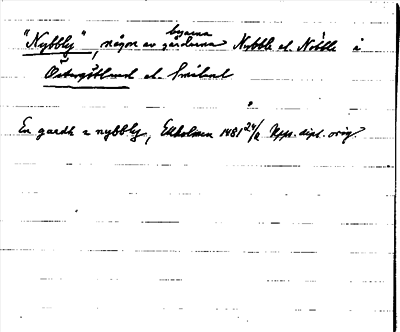 byarna
"Nybbly", någon av gårdarna Nybble el. Nöbble i
Östergötland el. Småland
En gardh i nybbly, Ekholmen 1481 24/2 Upps. dipl. orig.